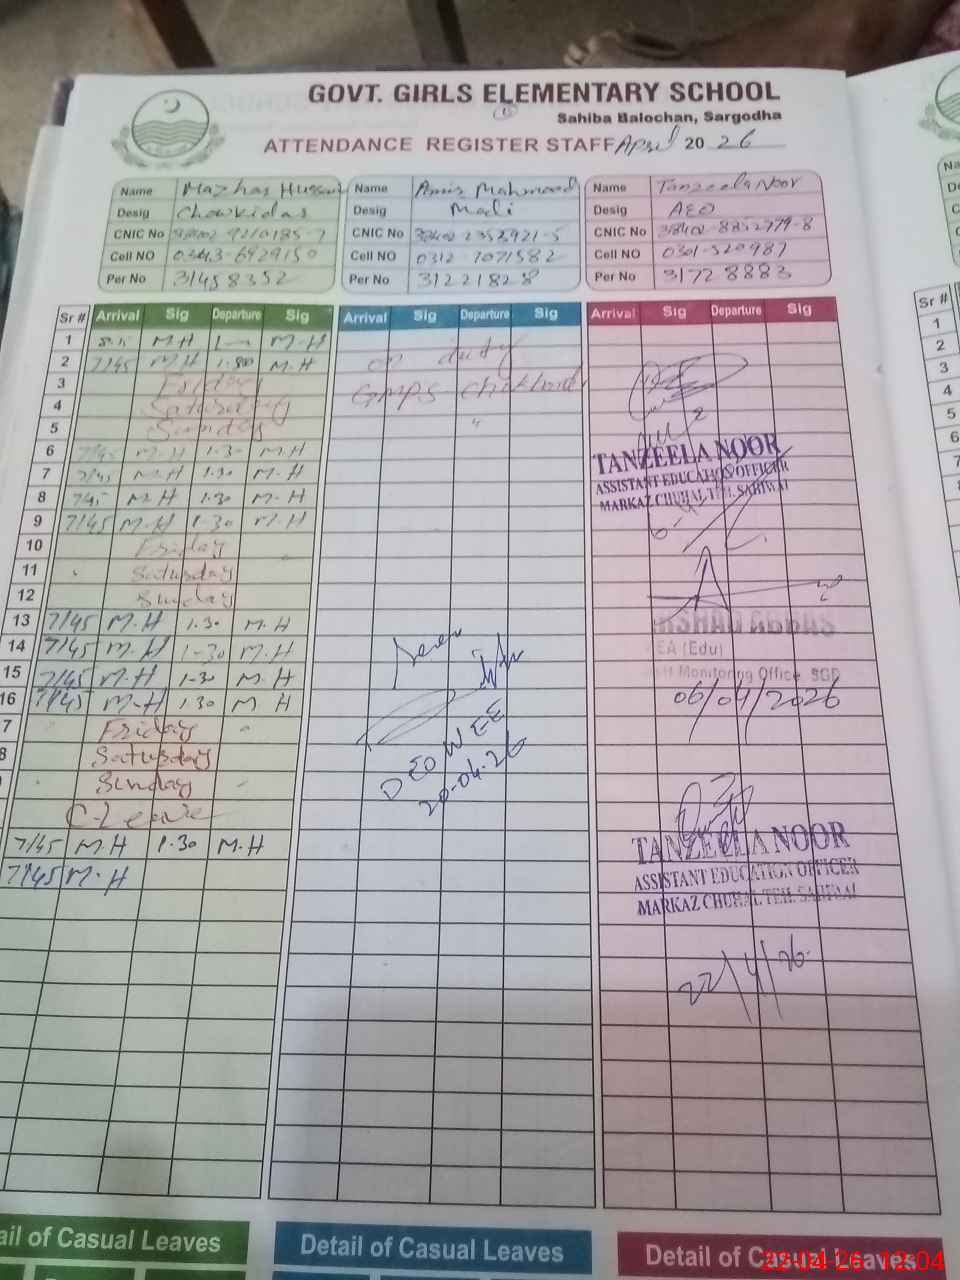 GOVT. GIRLS ELEMENTARY SCHOOL
Sahiba Balochan, Sargodha
ATTENDANCE REGISTER STAFF April 2026
Name Mazhar Hussain Name Amir Mahmood Name Tanzeela Noor
Desig Chowkidar Desig Mali Desig AEO
CNIC No CNIC No 38402-2353921-5 CNIC No 38402-8852779-8
Cell NO 0343-6929150 Cell NO 0312-7071582 Cell NO 0301-520987
Per No 31458352 Per No 31221828 Per No 31728883
Sr # Arrival Sig Departure Sig Arrival Sig Departure Sig Arrival Sig Departure Sig
1 M-H M-H on duty
2 7/45 M-H M-H
3 Friday GMPS
4 Saturday
5 Sunday "
6 7/45 M-H 1-30 M-H
7 7/45 M-H 1.30 M-H
8 7/45 M-H 1-30 M-H
9 7/45 M-H 1-30 M-H
10 Friday
11 Saturday
12 Sunday
13 7/45 M-H 1.30 M-H
14 7/45 M-H 1-30 M-H
15 7/45 M-H 1-30 M-H
16 7/45 M-H 1.30 M H
7 Friday
8 Saturday
Sunday
C-Leave
7/45 M-H 1.30 M-H
7/45 M-H
DEO W EE
20-04-26
TANZEELA NOOR
ASSISTANT EDUCATION OFFICER
MARKAZ CHUHAL TEH. SAHIWAL
EA (Edu)
Monitoring Office SGD
06/04/2026
TANZEELA NOOR
ASSISTANT EDUCATION OFFICER
MARKAZ CHUHAL TEH. SAHIWAL
22/4/26
ail of Casual Leaves Detail of Casual Leaves Detail of Casual Leaves
22-04-26 12:04
1
2
3
4
5
6
7